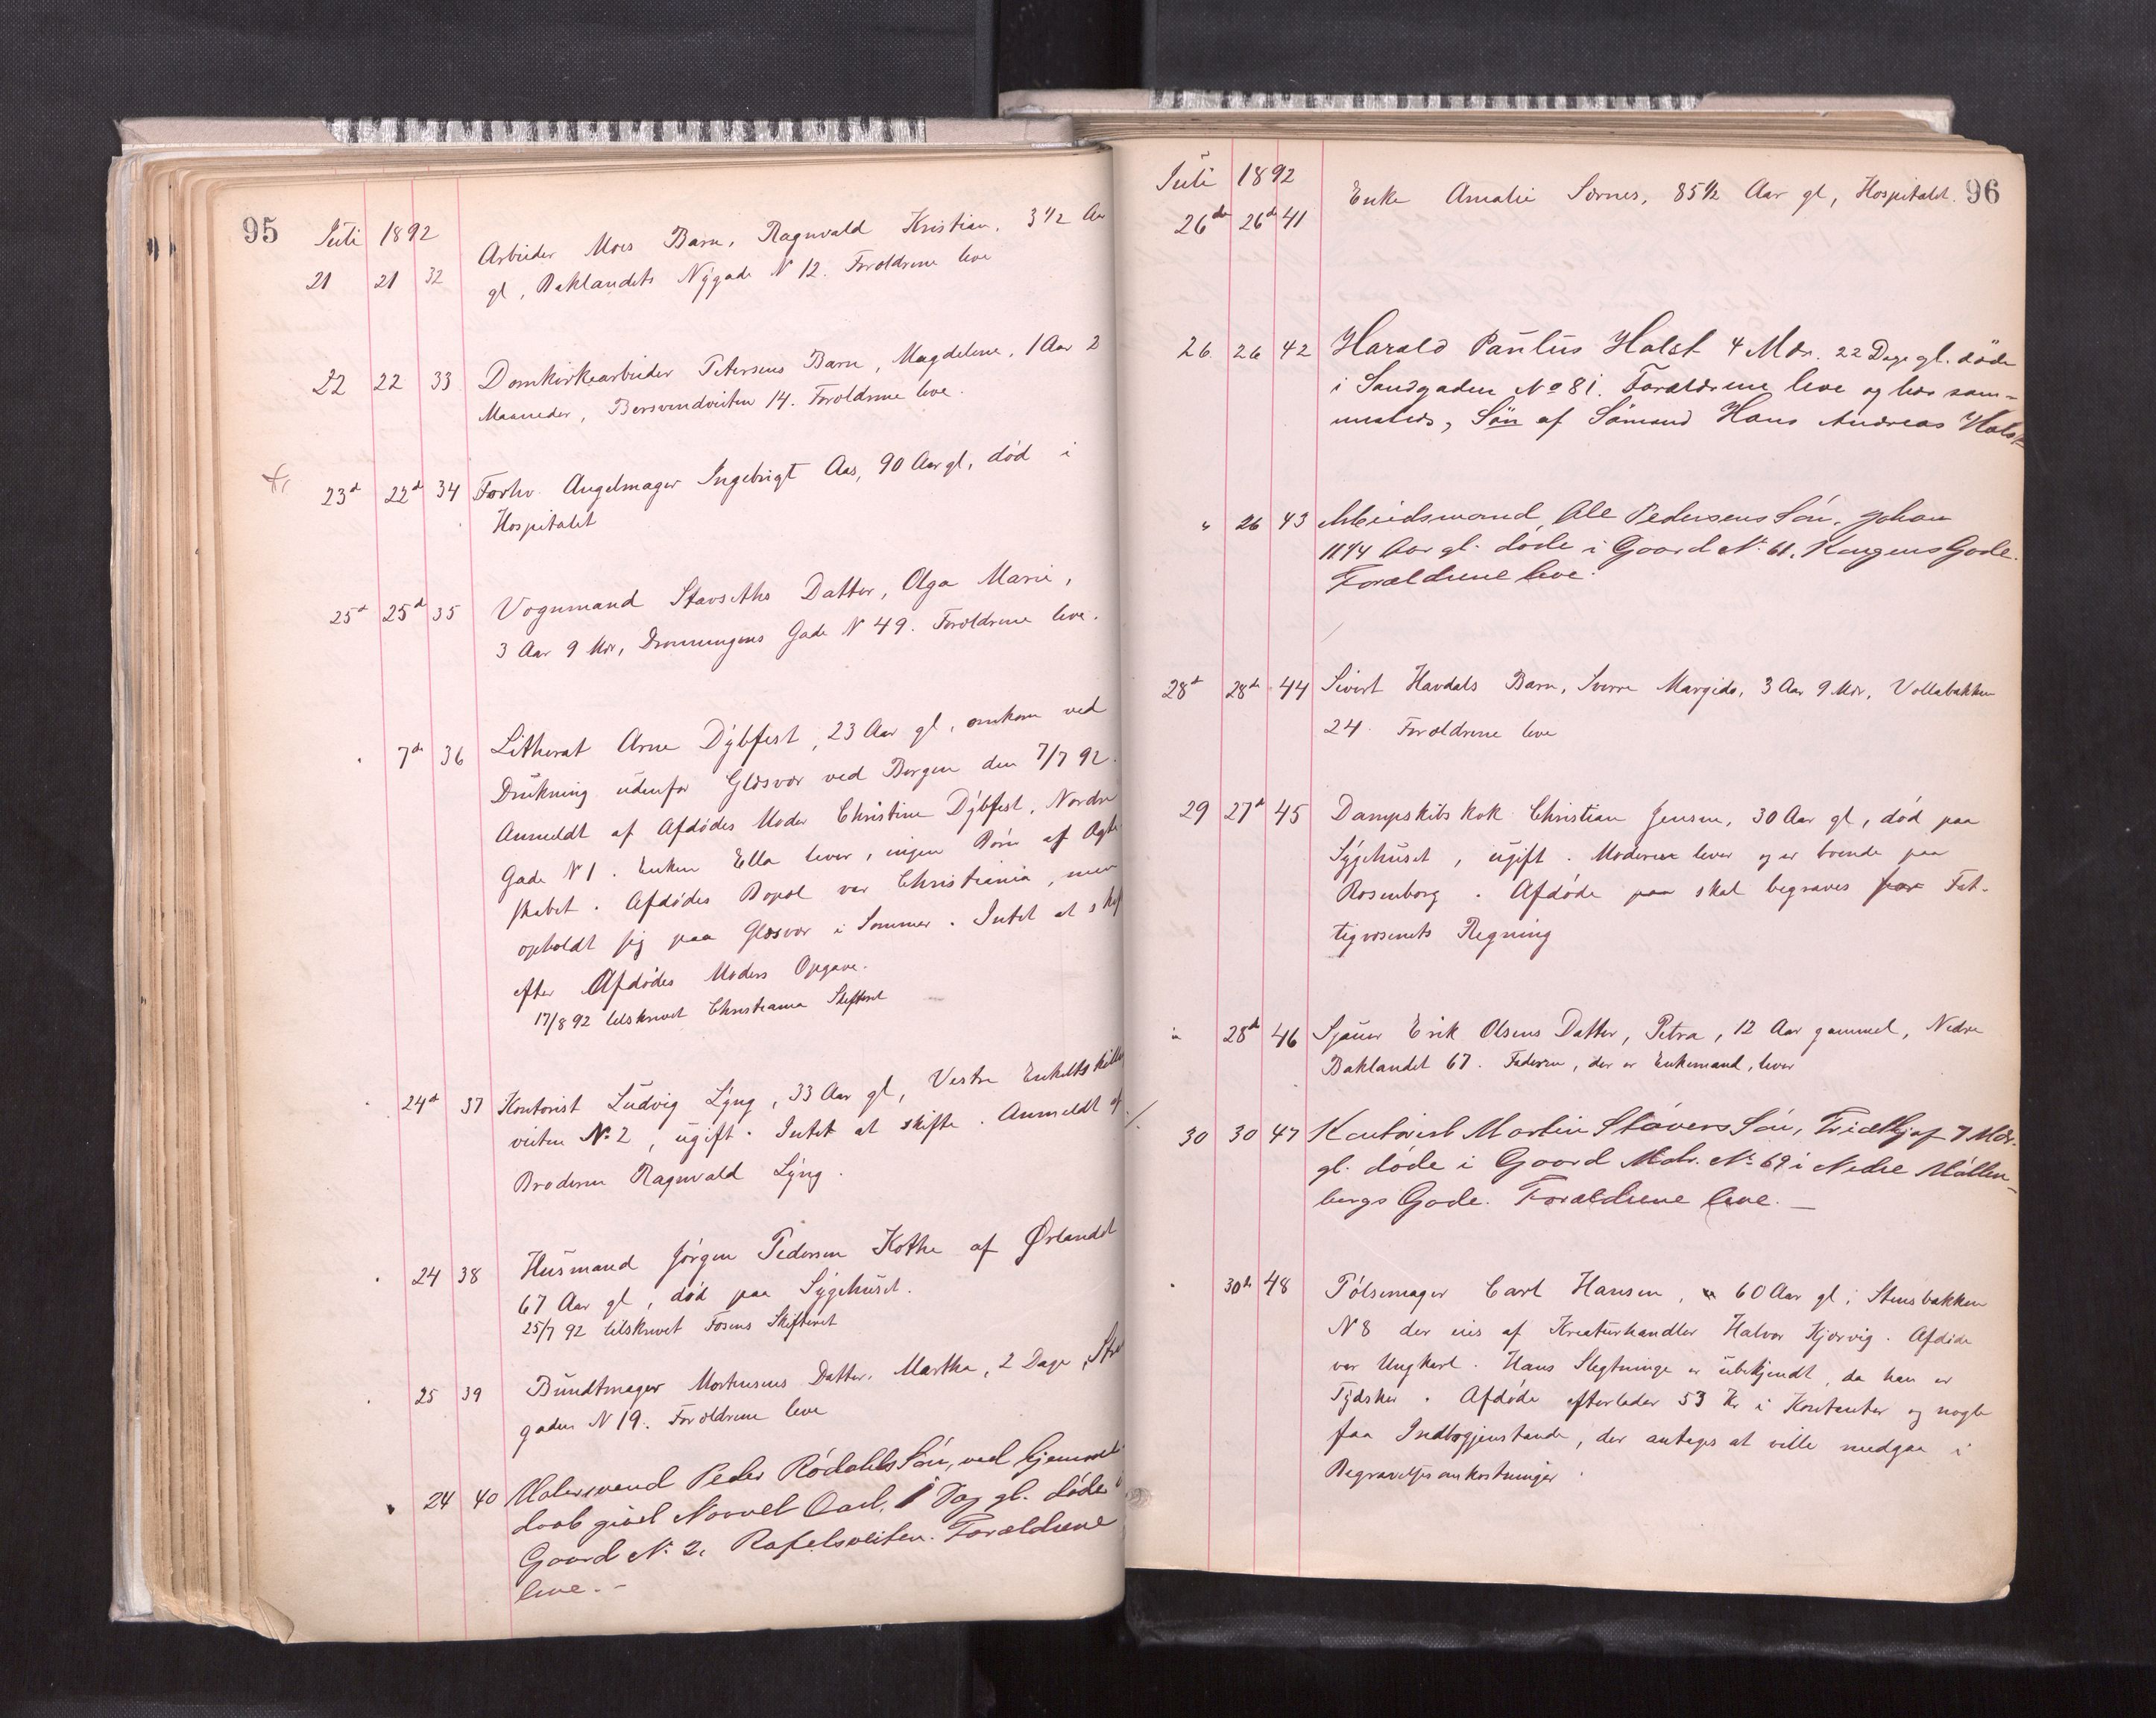 95
Juli 1892
21 21 32 Arbeider Moes Barn, Ragnvald Kristian, 3 1/2 Aar
gl, Baklandets Nygade N 12. Forældrene leve
22 22 33 Domkirkearbeider Petersens Barn, Magdelene, 1 Aar 2
Maaneder, Bersvendveiten 14. Forældrene leve.
23d 22d 34 Forhv. Angelmager Ingebrigt Aas, 90 Aar gl, død i
Hospitalet
25d 25d 35 Vognmand Stavseths Datter, Olga Marie,
3 Aar 9 Mdr, Dronningens Gade N 49. Forældrene leve.
7de 36 Litherat Arne Dybfest, 23 Aar gl, omkom ved
Drukning udenfor Glæsvær ved Bergen den 7/7 92.
Anmeldt af Afdødes Moder Christine Dybfest, Nordre
Gade N 1. Enken Ella lever, ingen Børn af Ægte-
skabet. Afdødes Bopæl var Christiania, men
opholdt sig paa Glæsvær i Sommer. Intet at skif
efter Afdødes Moders Opgave.
17/8 92 tilskrevet Christiania Skifteret
24d 37 Kontorist Ludvig Lyng, 33 Aar gl, Vestre Enkeltskillings
veiten No 2, ugift. Intet at skifte. Anmeldt af
Broderen Ragnvald Lyng.
24 38 Husmand Jørgen Pedersen Kothe af Ørlandet
67 Aar gl, død paa Sygehuset.
25/7 92 tilskrevet Fosens Skifteret
25 39 Bundtmager Mortensens Datter, Martha, 2 Dage, Strand
gaden N 19. Forældrene leve
24 40 Malersvend Peder Rødahls Søn, ved hjemme
daab givet Navnet Carl, 1 Dag gl. døde i
Gaard No 2, Rafelsveiten. Forældrene
leve. -
96
Juli 1892
26de 26d 41 Enke Amalie Sørnes, 85 1/2 Aar gl, Hospitalet.
26. 26 42 Harald Paulus Holst 4 Mdr. 22 Dage gl. døde
i Sandgaden No 81. Forældrene leve og bor sam-
mesteds, Søn af Sømand Hans Andreas Holst
" 26 43 Arbeidsmand, Ole Pedersens Søn, Johan
11 1/4 Aar gl. døde i Gaard No 61, Kongens Gade.
Forældrene leve.
28d 28de 44 Sivert Havdals Barn, Sverre Margido, 3 Aar 9 Mdr, Vollabakken
24. Forældrene leve
29 27d 45 Dampskibskok Christian Jensen, 30 Aar gl, død paa
Sygehuset, ugift. Moderen lever og er boende paa
Rosenborg. Afdøde paa skal begraves for Fat-
tigvæsenets Regning
" 28d 46 Sjauer Erik Olsens Datter, Petra, 12 Aar gammel, Nedre
Baklandet 67. Faderen, der er Enkemand, lever
30 30 47 Kontorist Martin Støvers Søn, Fridthjof 7 Mdr.
gl. døde i Gaard Matr. No 69 i Nedre Møllen-
bergs Gade. Forældrene leve. -
30te 48 Pølsemager Carl Hansen, 60 Aar gl, Stensbakken
N 8 der eies af Kreaturhandler Halvor Kjærvig. Afdøde
var Ungkarl. Hans Slegtninge er ubekjendt, da han er
Tydsker. Afdøde efterlader 53 Kr i Kontanter og nogle
faa Indbogjenstande, der antages at ville medgaa i
Begravelsesomkostninger.